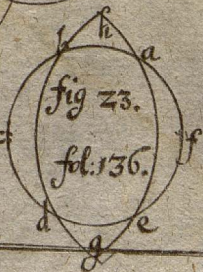 h
b a
fig 23.
c f
fol: 136.
d e
g